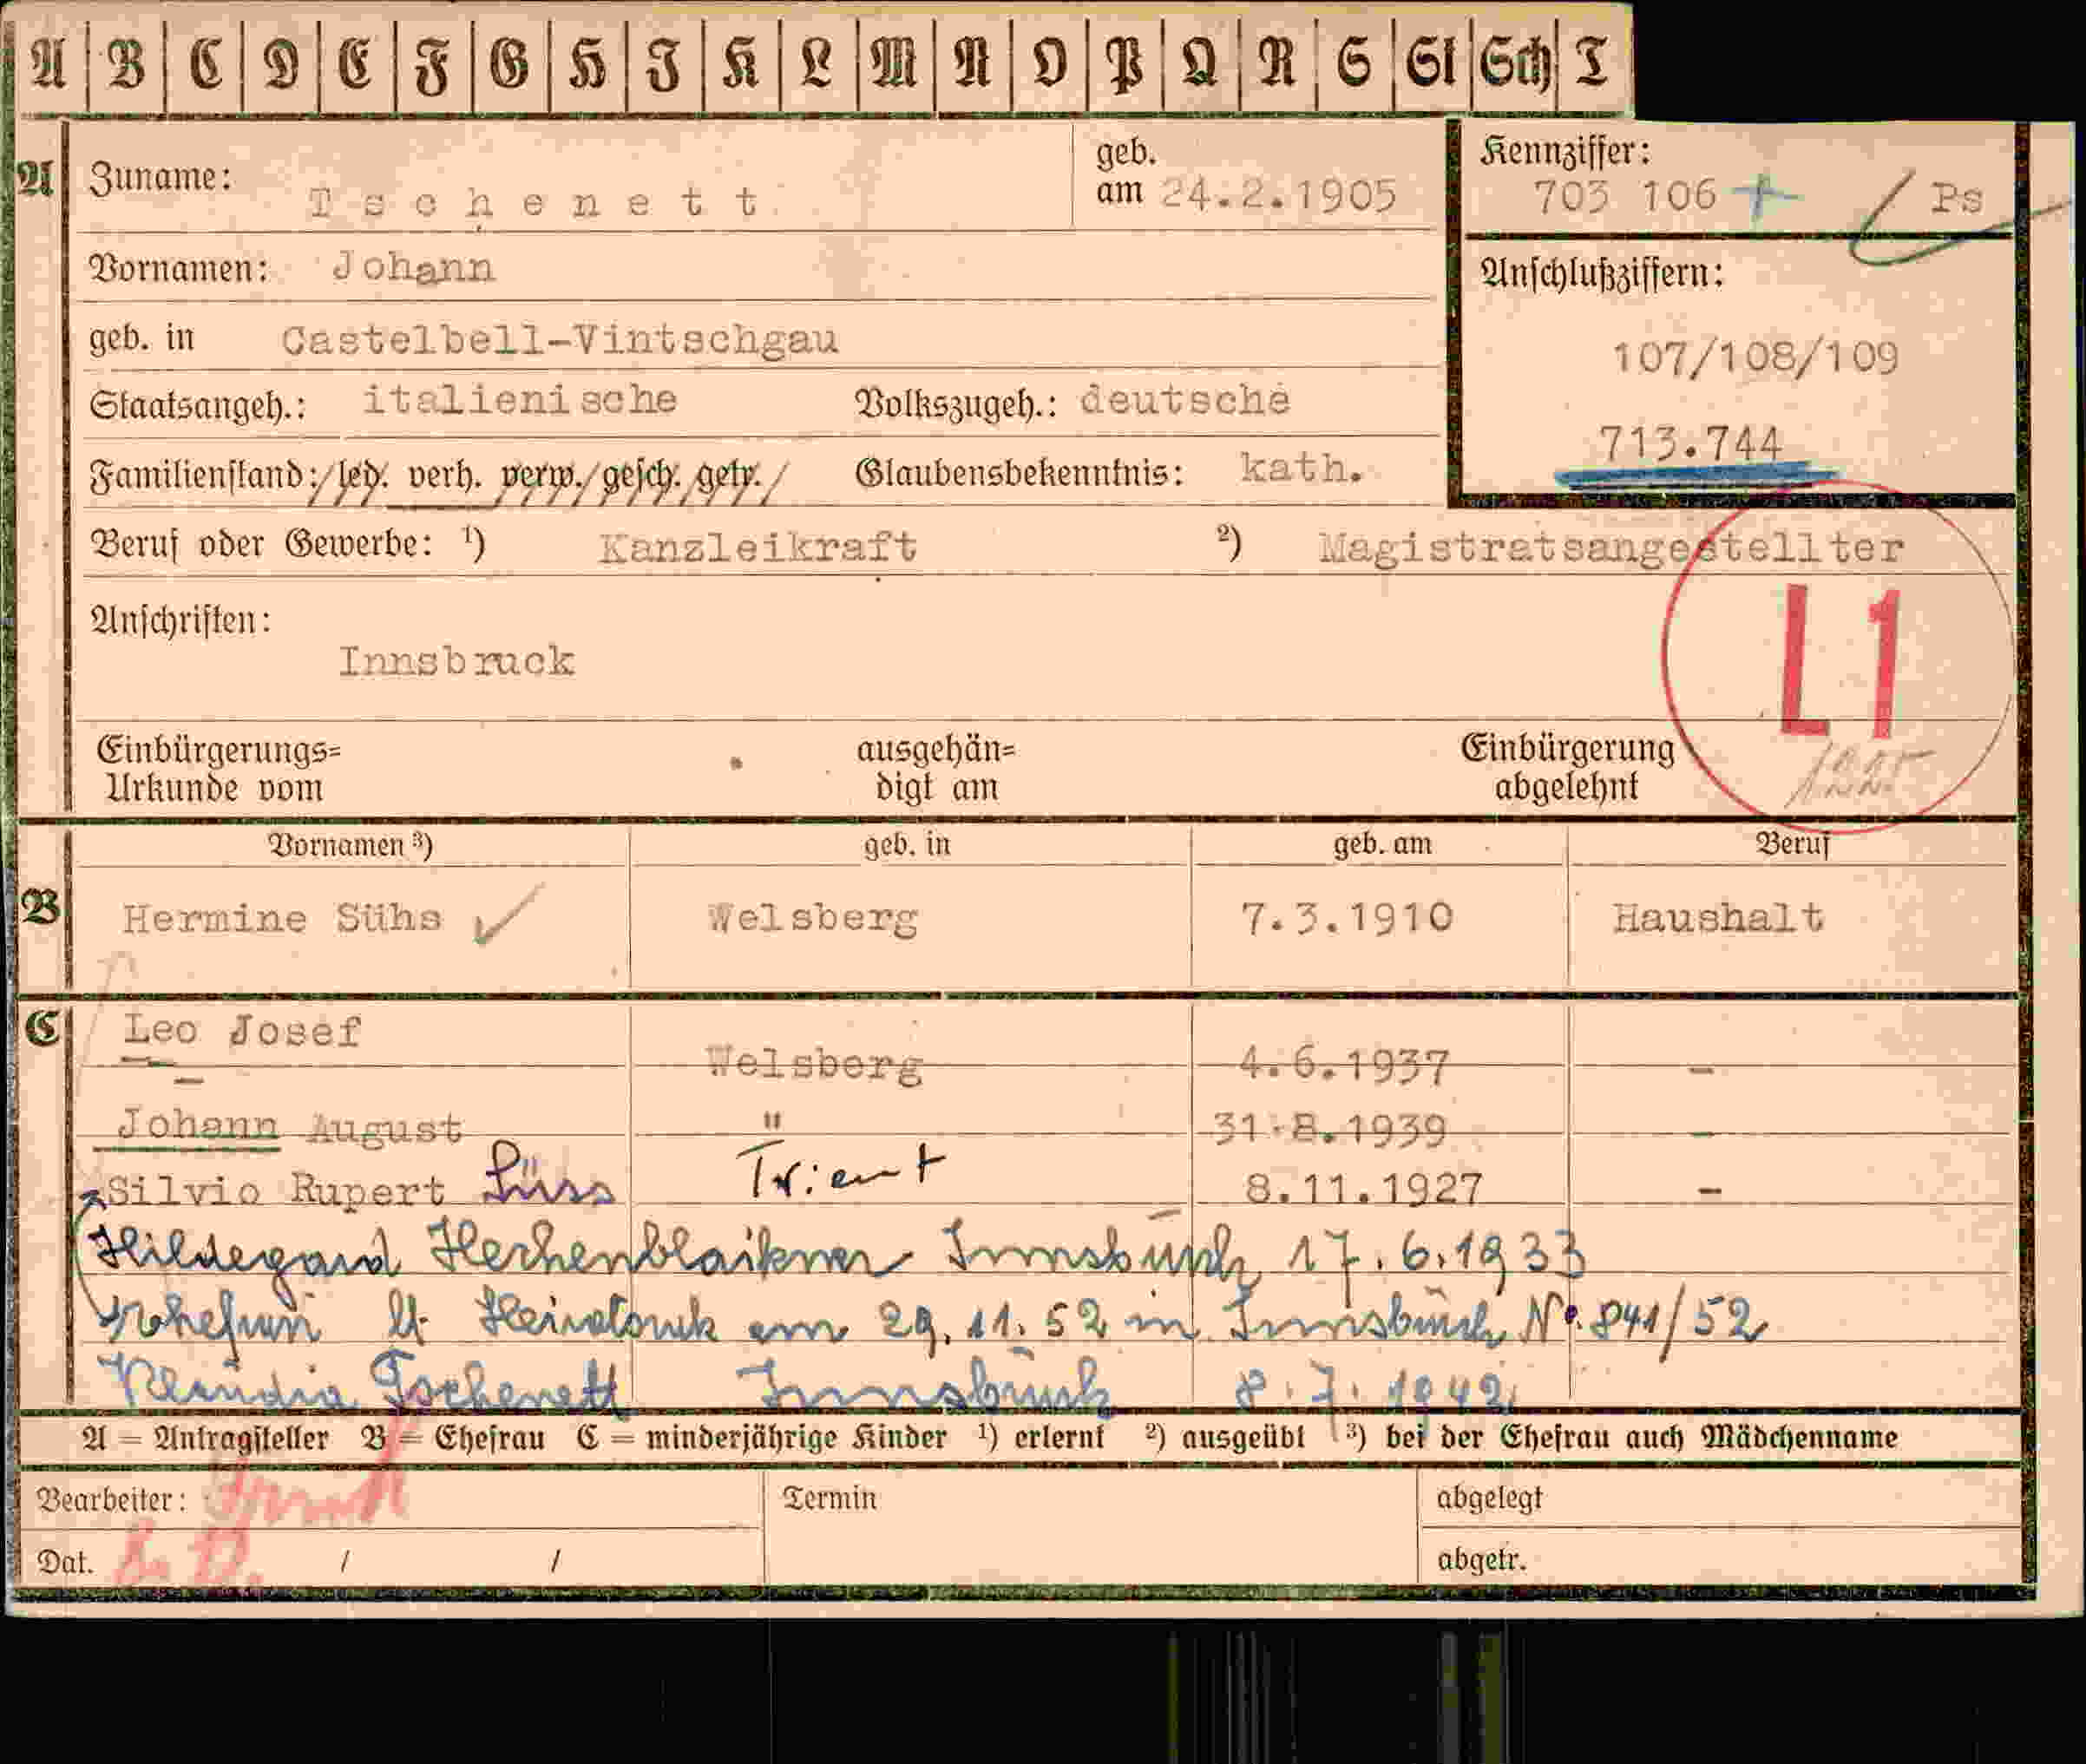 A B C D E F G H I K L M N O P Q R S St Sch T
A Zuname: Tschenett geb. am 24.2.1905
Kennziffer: 703 106 + / Ps
Vornamen: Johann
Anschlußziffern:
geb. in Castelbell-Vintschgau
107/108/109
Staatsangeh.: italienische Volkszugeh.: deutsche
713.744
Familienstand: led. verh. verw. gesch. getr. Glaubensbekenntnis: kath.
Beruf oder Gewerbe: 1) Kanzleikraft 2) Magistratsangestellter
Anschriften:
Innsbruck
L1
Einbürgerungs= ausgehän= Einbürgerung
Urkunde vom digt am abgelehnt
Vornamen 3) geb. in geb. am Beruf
B Hermine Sühs Welsberg 7.3.1910 Haushalt
C Leo Josef Welsberg 4.6.1937 -
Johann August " 31.8.1939 -
Silvio Rupert Süss Trient 8.11.1927 -
Hildegard Hechenblaikner Innsbruck 17.6.1933
Ehefrau lt. Heiratsurk am 29.11.52 in Innsbruck No. 841/52
Klaudia Tschenett Innsbruck 8.7.1942
A = Antragsteller B = Ehefrau C = minderjährige Kinder 1) erlernt 2) ausgeübt 3) bei der Ehefrau auch Mädchenname
Bearbeiter: Termin abgelegt
Dat. / / abgetr.